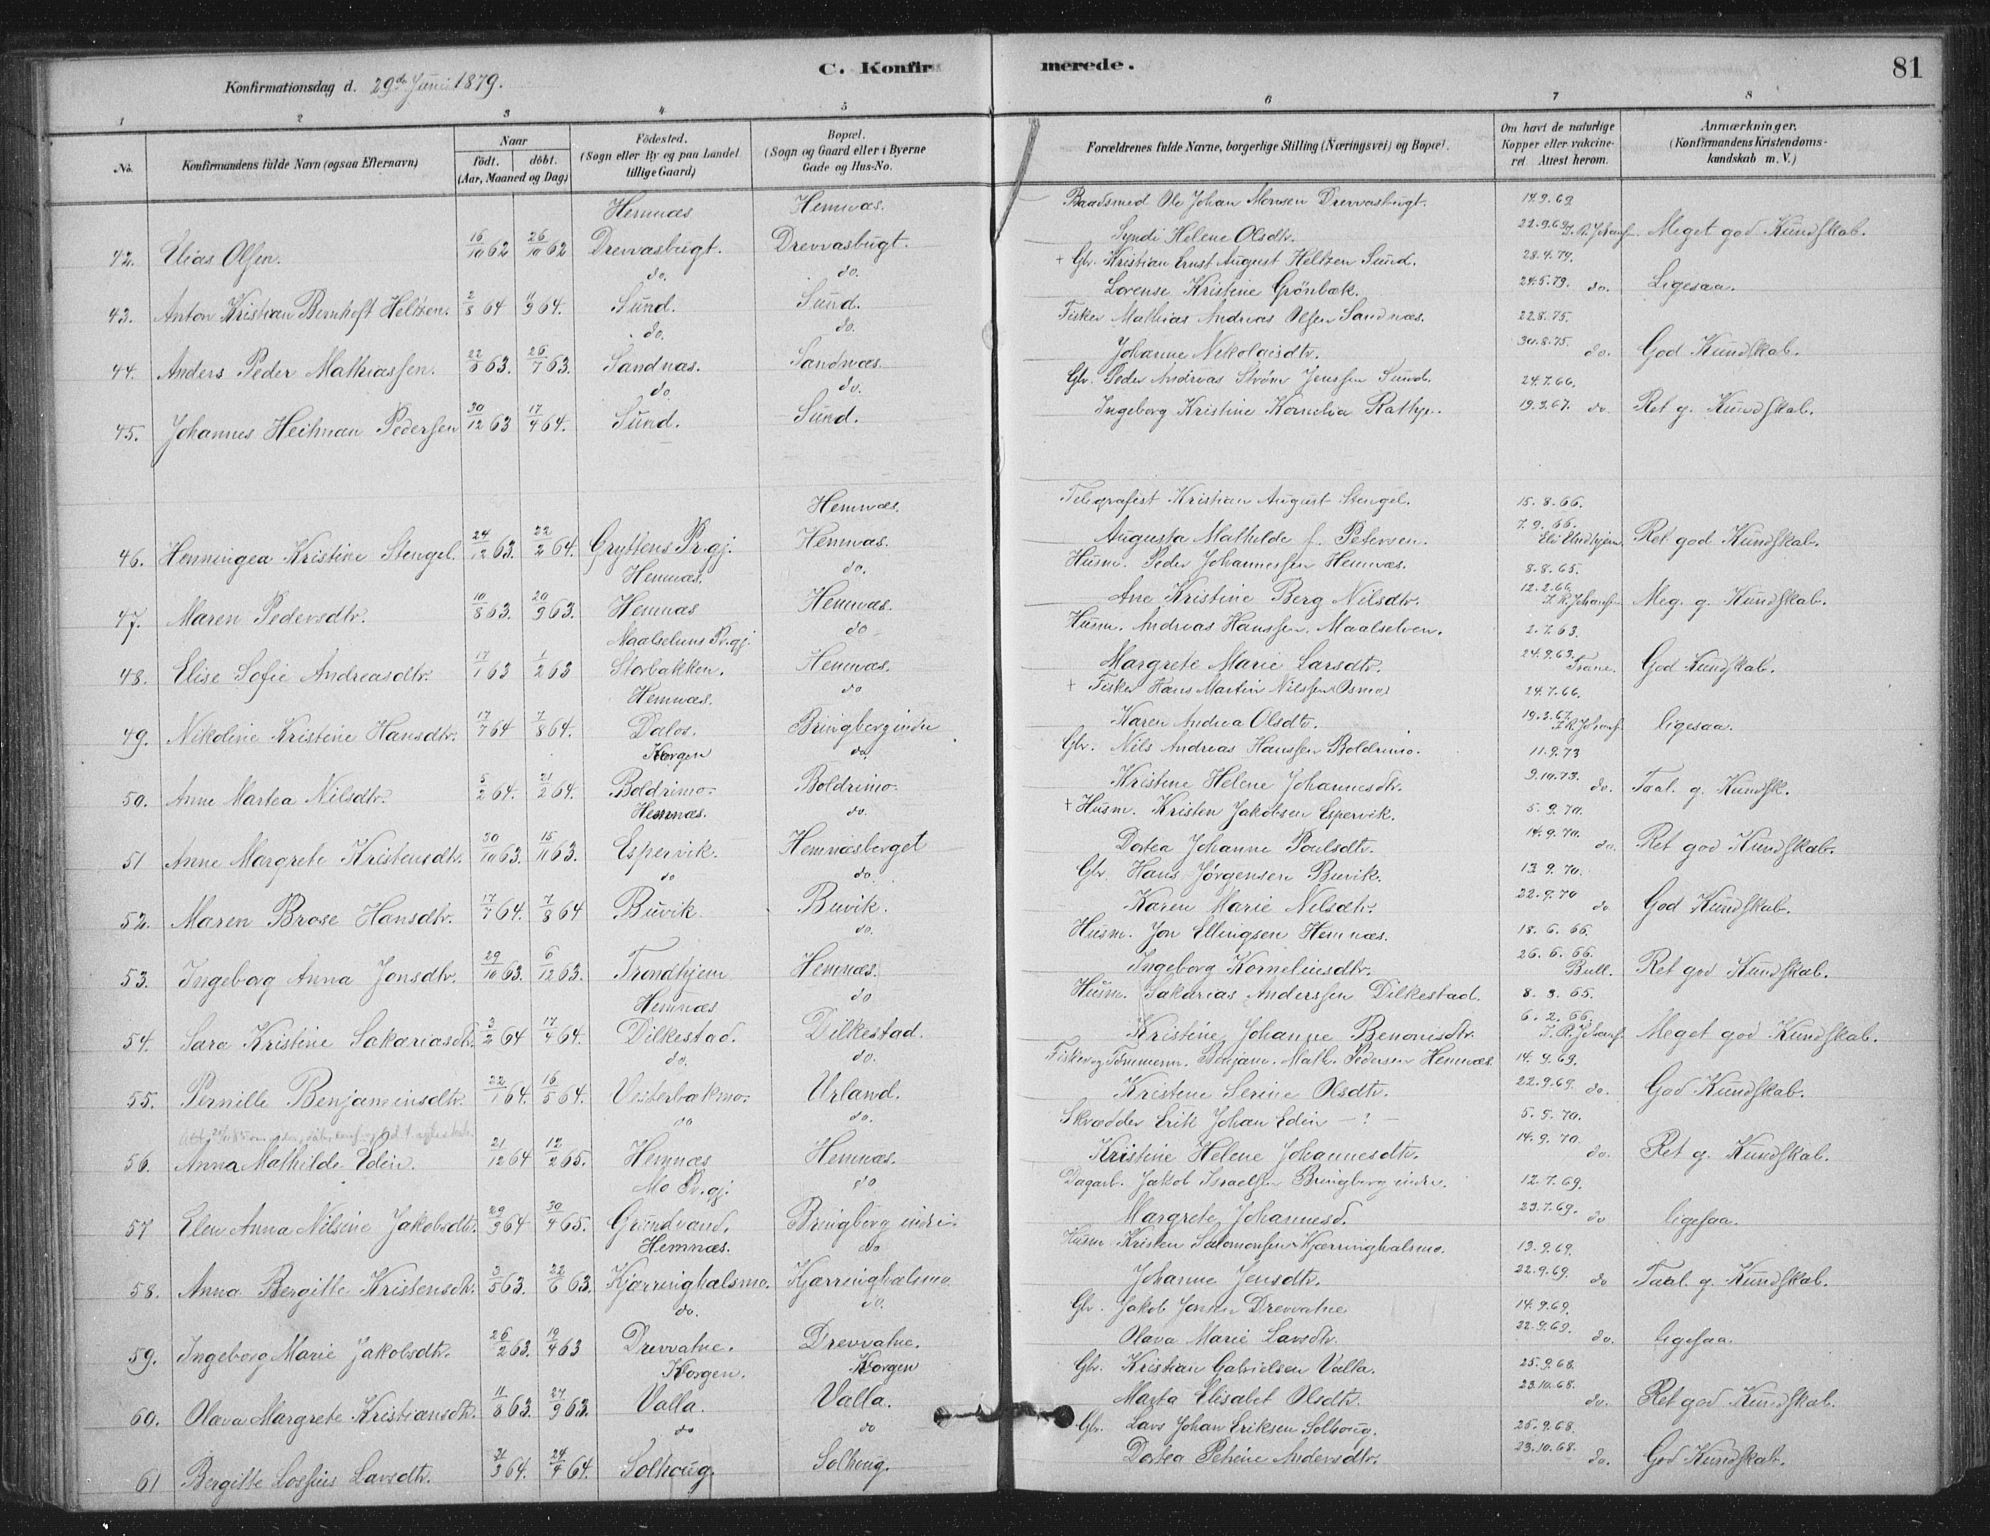 C. Konfirmerede. 81
Konfirmationsdag d. 29de Juni 1879.
1 2 3 4 5 6 7 8
No. Konfirmandens fulde Navn (ogsaa Efternavn) Naar födt. döbt. (Aar, Maaned og Dag) Födested. (Sogn eller By og paa Landet tillige Gaard) Bopæl. (Sogn og Gaard eller i Byerne Gade og Hus-No. Forældrenes fulde Navne, borgerlige Stilling (Næringsvei) og Bopæl. Om havt de naturlige Kopper eller vakcineret. Attest herom. Anmærkninger. (Konfirmandens Kristendomskundskab m. V.)
Hemnæs Hemnæs. Baadsmed Ole Johan Monsen Drevvasbugt. 14.9.69
42. Elias Olsen. 16/10 62 26/10 62 Drevvasbugt. Drevvasbugt. Syndi Helene Olsdtr. 22.9.69 Meget god Kundskab.
do. do. + Gbr. Kristian Ernst August Heltzen Sund. 28.4.79.
43. Anton Kristian Bernhoft Heltzen. 2/8 64 9 64. Sund. Sund. Lorense Kristine Grönbæk. 24.5.79. do. Ligesaa.
do. do. Fisker Mathias Andreas Olsen Sandnæs. 22.8.75.
44. Anders Peder Mathiassen. 22/6 63. 26/7 63. Sandnæs. Sandnæs. Johanne Nikolaisdtr. 30.8.75. do. God Kundskab.
do do. Gbr. Peder Andreas Ström Jenssen Sund. 24.7.66.
45. Johannes Heitman Pedersen 30/12 63 17/4 64. Sund. Sund. Ingeborg Kristine Kornelia 19.3.67. do. Ret g. Kundskab.
Hemnæs. Telegrafist Kristian August Stengel. 15.8.66.
46. Henningea Kristine Stengel. 24/12 63. 22/2 64. Gryttens Pr.gj. Hemnæs. Augusta Mathilde f. Petersen. 7.9.66. Ret god Kundskab.
Hemnæs. do. Husm. Peder Johannessen Hemnæs. 8.8.65.
47. Maren Pedersdtr. 10/8 63. 20/9 63. Hemnæs Hemnæs. Ane Kristine Berg Nilsdtr. 12.2.66. Meg. g. Kundskab.
Maalselvens Pr.gj. do Husm. Andreas Hanssen. Maalselven. 2.7.63.
48. Elise Sofie Andreasdtr. 17/1 63 1/2 63 Storbakken. Hemnæs. Margrete Marie Larsdtr. 24.9.63. God Kundskab.
Hemnæs. do + Fisker Hans Martin Nilssen 24.7.66.
49. Nikoline Kristine Hansdtr. 17/7 64 7/8 64. Dalos. Bringberg indre Karen Andrea Olsdtr. 19.3.67. ligesaa.
Korgen do. Gbr. Nils Andreas Hanssen Boldrimo. 11.9.73
50. Anne Martea Nilsdtr. 5/2 64. 21/2 64. Boldrimo. Boldrimo. Kristine Helene Johannesdtr. 9.10.73. do. Taal. g. Kundsk.
Hemnæs. do. + Husm. Kristen Jakobsen Espervik. 5.9.70.
51 Anne Margrete Kristensdtr. 30/10 63. 15/11 63. Espervik. Hemnæsberget Dortea Johanne Poulsdtr. 14.9.70. do. Ret god Kundskab.
do do. Gbr. Hans Jörgensen Buvik. 13.9.70.
52. Maren Brose Hansdtr. 17/7 64. 7/8 64 Buvik. Buvik. Karen Marie Nilsdtr. 22.9.70 do. God Kundskab.
do. Husm. Jon Ellingsen Hemnæs. 18.6.66.
53. Ingeborg Anna Jonsdtr. 29/10 63. 6/12 63. Trondhjem Hemnæs. Ingeborg Korneliusdtr. 26.6.66. Bull. Ret god Kundskab.
Hemnæs do Husm. Sakarias Anderssen Dilkestad. 8.3.65.
54. Sara Kristine Sakariasdtr. 3/2 64 17/4 64. Dilkestad. Dilkestad. Kristine Johanne Benonisdtr. 6.2.66. Meget god Kundskab.
do. do. Fisker og Tömmerm. Benjam. Math. Pedersen Hemnæs. 14.9.69.
55. Pernille Benjaminsdtr. 22/1 64. 16/5 64. Vesterbakmo. Urland. Kristine Serine Olsdtr. 22.9.69. do. God Kundskab.
do do. Skrædder Erik Johan Edin —!— 5.5.70.
56. Anna Mathilde Edin. 21/12 64 12/2 65. Hemnæs Hemnæs. Kristine Helene Johannesdtr. 14.9.70. do. Ret g. Kundskab.
Mo Pr.gj. do Dagarb. Jakob Israelsen Bringberg indre. 12.7.69.
57 Elen Anna Nilsine Jakobsdtr. 29/9 64 30/4 65. Grundvand. Bringberg indre. Margrete Johannesd. 23.7.69. do ligesaa.
Hemnæs. do Husm. Kristen Salomonsen Kjærringhalsmo. 13.9.69.
58. Anna Bergitte Kristensdtr. 3/5 63. 22/6 63. Kjærringhalsmo. Kjærringhalsmo. Johanne Jensdtr. 22.9.69. do Taal g. Kundskab.
do. do. Gbr. Jakob Jonsen Drevvatne 14.9.69.
59. Ingeborg Marie Jakobsdtr. 26/2 63. 19/4 63 Drevvatne. Drevvatne. Olava Marie Larsdtr. 22.9.69. do. ligesaa.
Korgen. Korgen Gbr. Kristian Gabrielsen Valla. 25.9.68.
60. Olava Margrete Kristiansdtr. 11/8 63. 27/9 63. Valla. Valla. Marta Elisabet Olsdtr. 23.10.68. do. Ret god Kundskab.
do do Gbr. Lars Johan Eriksen Solhoug. 25.9.68.
61 Bergitte Larsdtr. 31/3 64. 24/4 64. Solhoug. Solhoug. Dortea Petrine Andersdtr. 23.10.68. do. God Kundskab.